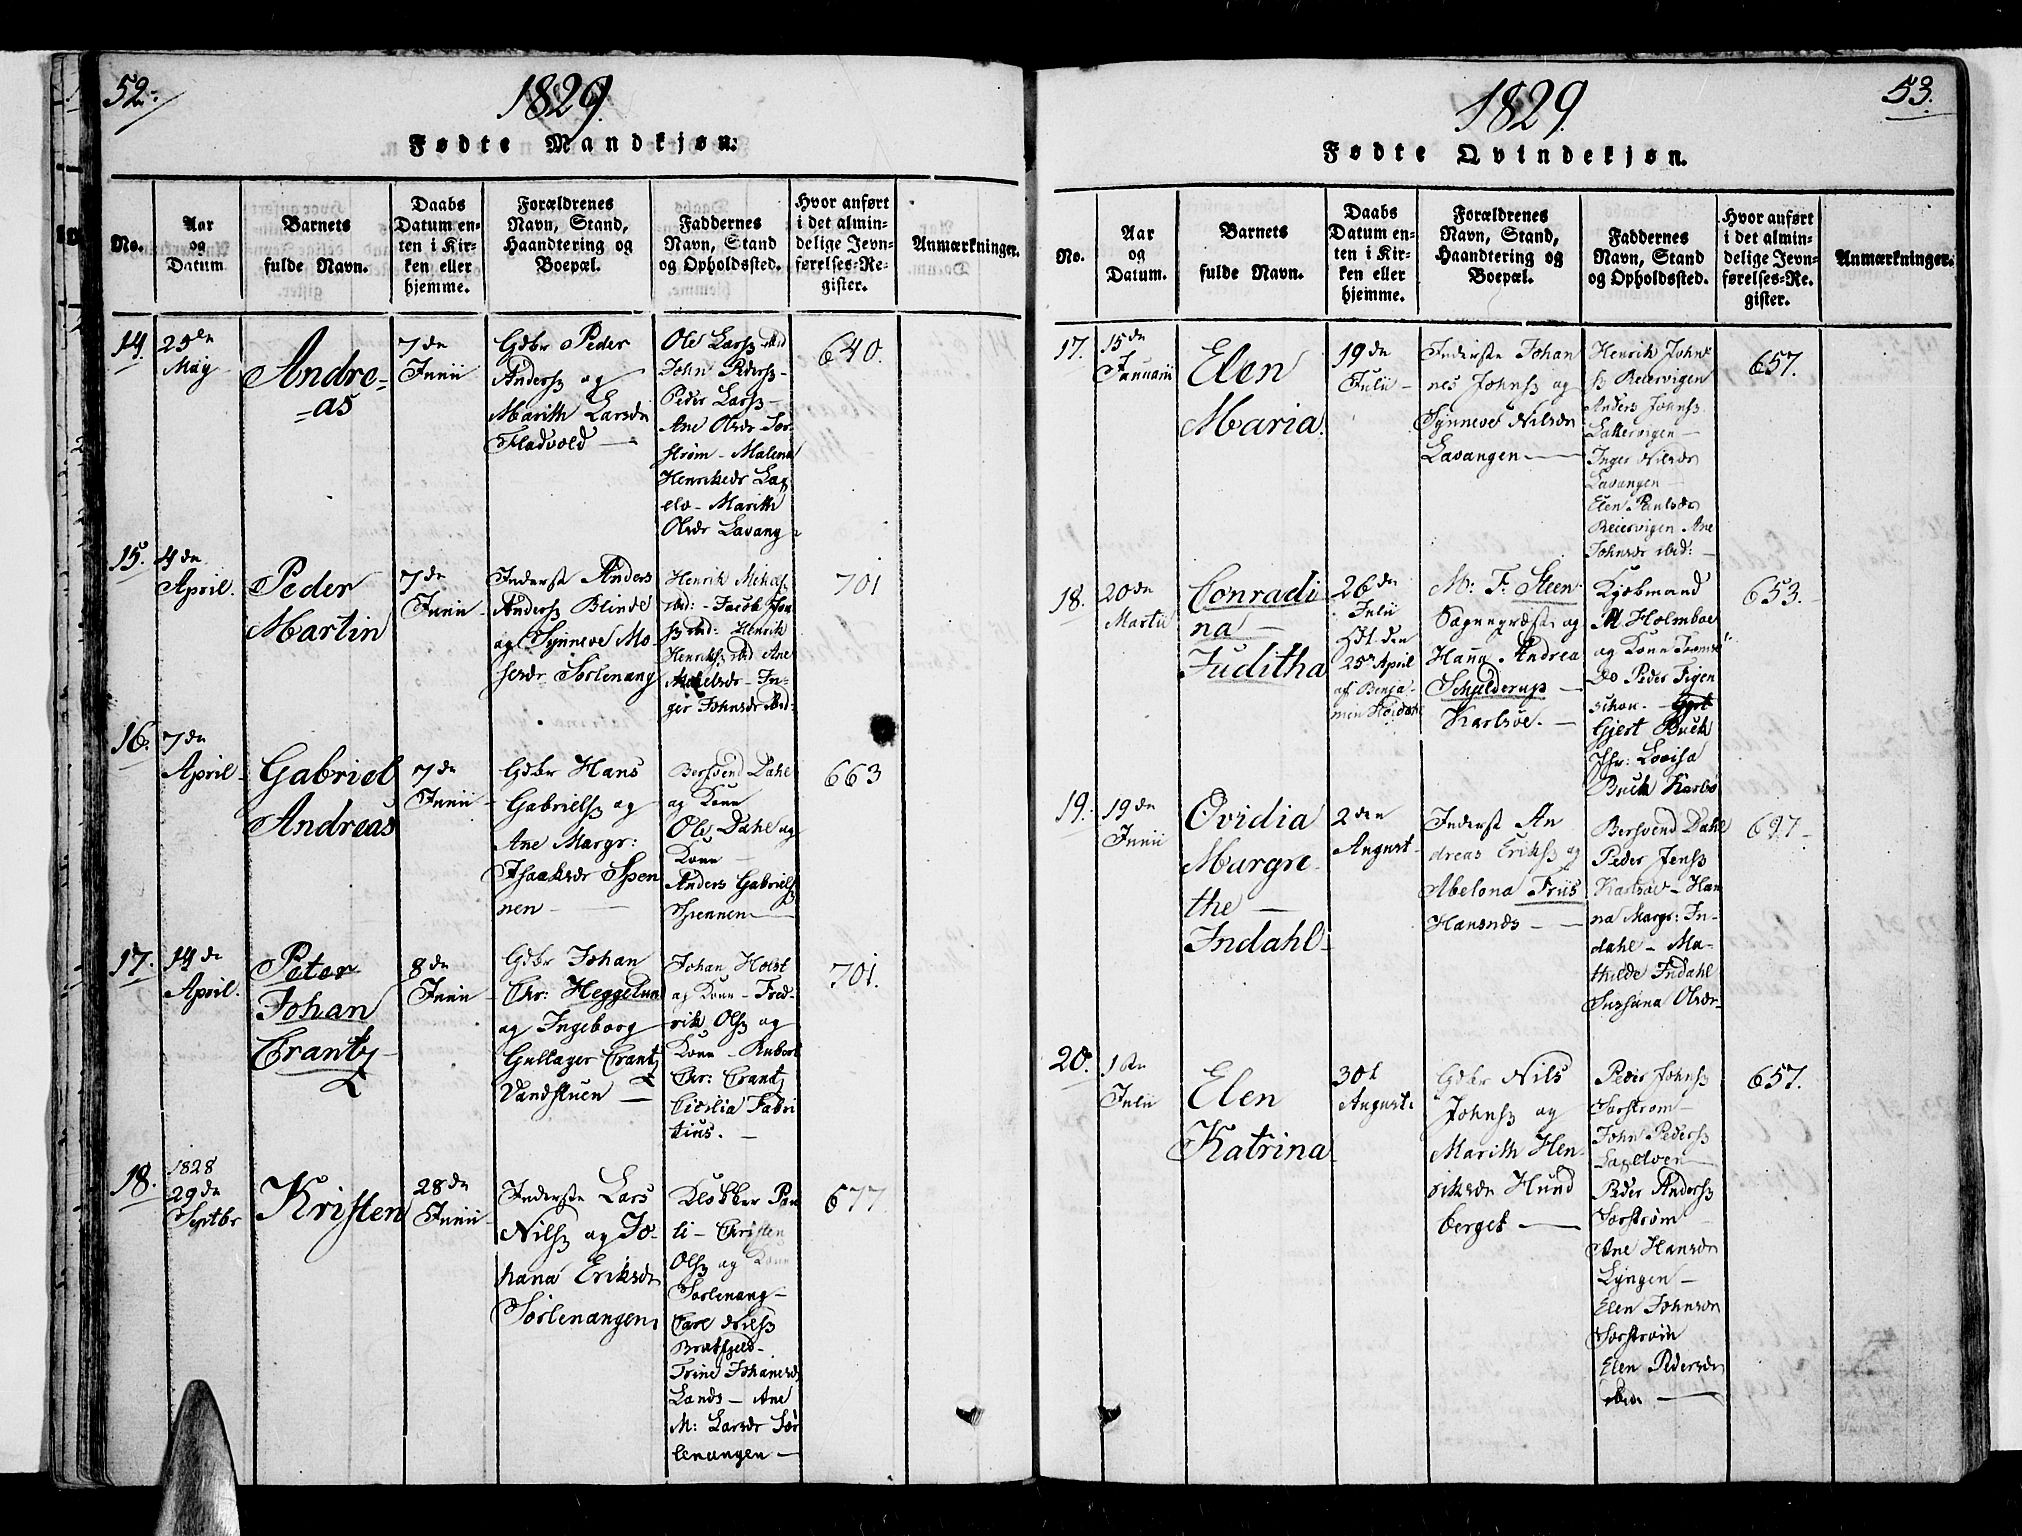 52.
1829.
Fødte Mandkjøn.
No.
Aar
og
Datum
Barnets
fulde Navn.
Daabs
Datum en-
ten i Kir-
ken eller
hjemme.
Forældrenes
Navn, Stand,
Haandtering og
Boepæl.
Faddernes
Navn, Stand
og Opholdssted.
Hvor anført
i det almin-
delige Jevn-
førelses-Re-
gister.
Anmærkninger.
14.
25de
May
Andre-
-as
7de
Junii
Gdbr Peder
Anders͡s og
Marith Larsdr
Fladvold —
Ole Lars͡s ibid
John Peders͡s -
Peder Lars͡s -
Ane Olsdr Sør
strøm - Malena
Henriksdr Lag
elv - Marith
Olsdr Lavang -
640.
15.
4de
April.
Peder
Martin
7de
Junii
Inderst Anders
Anders͡s Blinde
og Synneve Mo-
sesdr Sørlenang
Henrik Mikels͡s
ibid: - Jacob Han
s͡s ibid: Henrik
Henriks͡s ibid Ane
Mikelsdr - In-
ger Johnsdr ibid -
701
16.
7de
April
Gabriel
Andreas
7de
Junii
Gdbr Hans
Gabriels͡s og
Ane Margr:
Isaaksdr Spen
nen —
Bersvend Dahl
og Kone
Ole Dahl og
Kone —
Anders Gabriels͡s
Spennen —
663
17.
14de
April.
Peter
Johan
Crantz
8de
Junii
Gdbr Johan
Chr: Heggelund
og Ingeborg
Gullager Crantz
Vandstuen —
Johan Holst
og Kone - Fred-
rik Ols͡s og
Kone - Rubert
Chr: Crantz
Cicilia Fabri
tius. —
701.
18.
1828
29de
Septbr
Kristen
28de
Junii
Inderste Lars
Nils͡s og Jo-
hana Eriksdr
Sørlenangen
Klokker Pau
li - Christen
Ols͡s og Kone
Sørlenang -
Carl Nils͡s
Bratfjeld -
Trine Johansdr
Lands - Ane
M: Larsdr Sør
lenangen —
677
53.
1829.
Fødte Qvindekjøn.
No.
Aar
og
Datum.
Barnets
fulde Navn.
Daabs
Datum en-
ten i Kir-
ken eller
hjemme.
Forældrenes
Navn, Stand,
Haandtering og
Boepæl.
Faddernes
Navn, Stand
og Opholdssted.
Hvor anført
i det almin-
delige Jevn-
førelses-Re-
gister.
Anmærkninger.
17.
15de
Januarii
Elen
Maria.
19de
Julii -
Inderste Johan
nes Johns͡s og
Synneve Nilsdr
Lavangen —
Henrik John
s͡s Reiervigen
Anders Johns͡s
Lattervigen —
Inger Nilsdr
Lavangen —
Elen Paulsdr
Reiervigen Ane
Johnsdr ibid: —
657.
18.
20de
Martii
Conradi
na —
Juditha
26de
Julii
Hdt. den
25de April
af Benja-
min Heidahl
M: F: Steen
Sognepræst og
Hana Andrea
Schjelderup —
Karlsøe. —
Kjøbmand
M Holmboe
og Kone Tromsø
Do Peder Figen
schou. - Gjert
Gjert Buck
Jfr: Lovisa
Buck Karlsø
653.
19.
19de
Junii
Ovidia
Margre-
the —
Indahl -
2den
August -
Inderst An
dreas Eriks͡s og
Abelona Friis
Hansnes —
Bersvend Dahl
Peder Jens͡s
Karlsøe - Han
na Margr: In-
dahl - Ma-
thilde Indahl
Susana Olsdr -
697 -
20.
1ste
Julii
Elen
Katrina
30t
Augusti
Gdbr Nils
Johns͡s og
Marith Hen
riksdr Hund
berget —
Peder Johns͡s
Sørstrøm —
John Peders͡s
Lagelven —
Peder Anders͡s
Sørstrøm
Ane Hansdr
Lyngen —
Elen Johnsdr
Sørstrøm
Elen Pedersdr
ibid —
657.